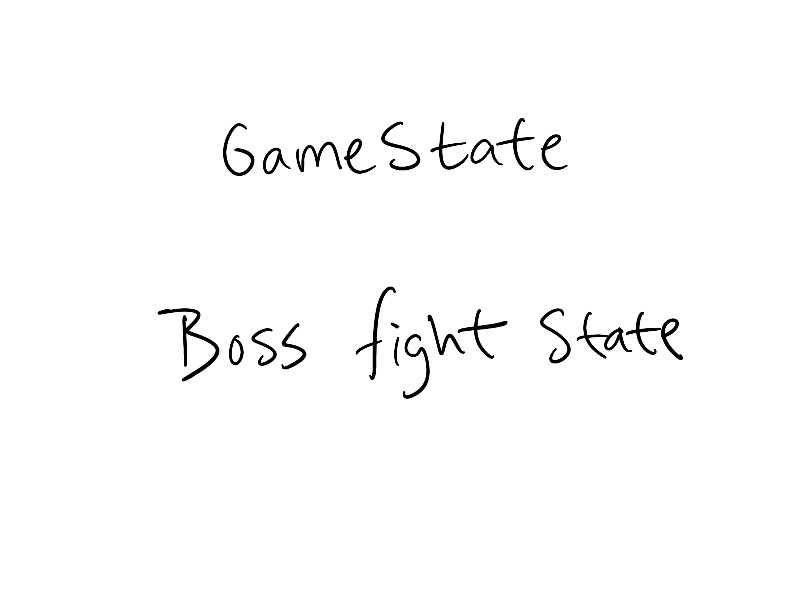 GameState
Boss fight State